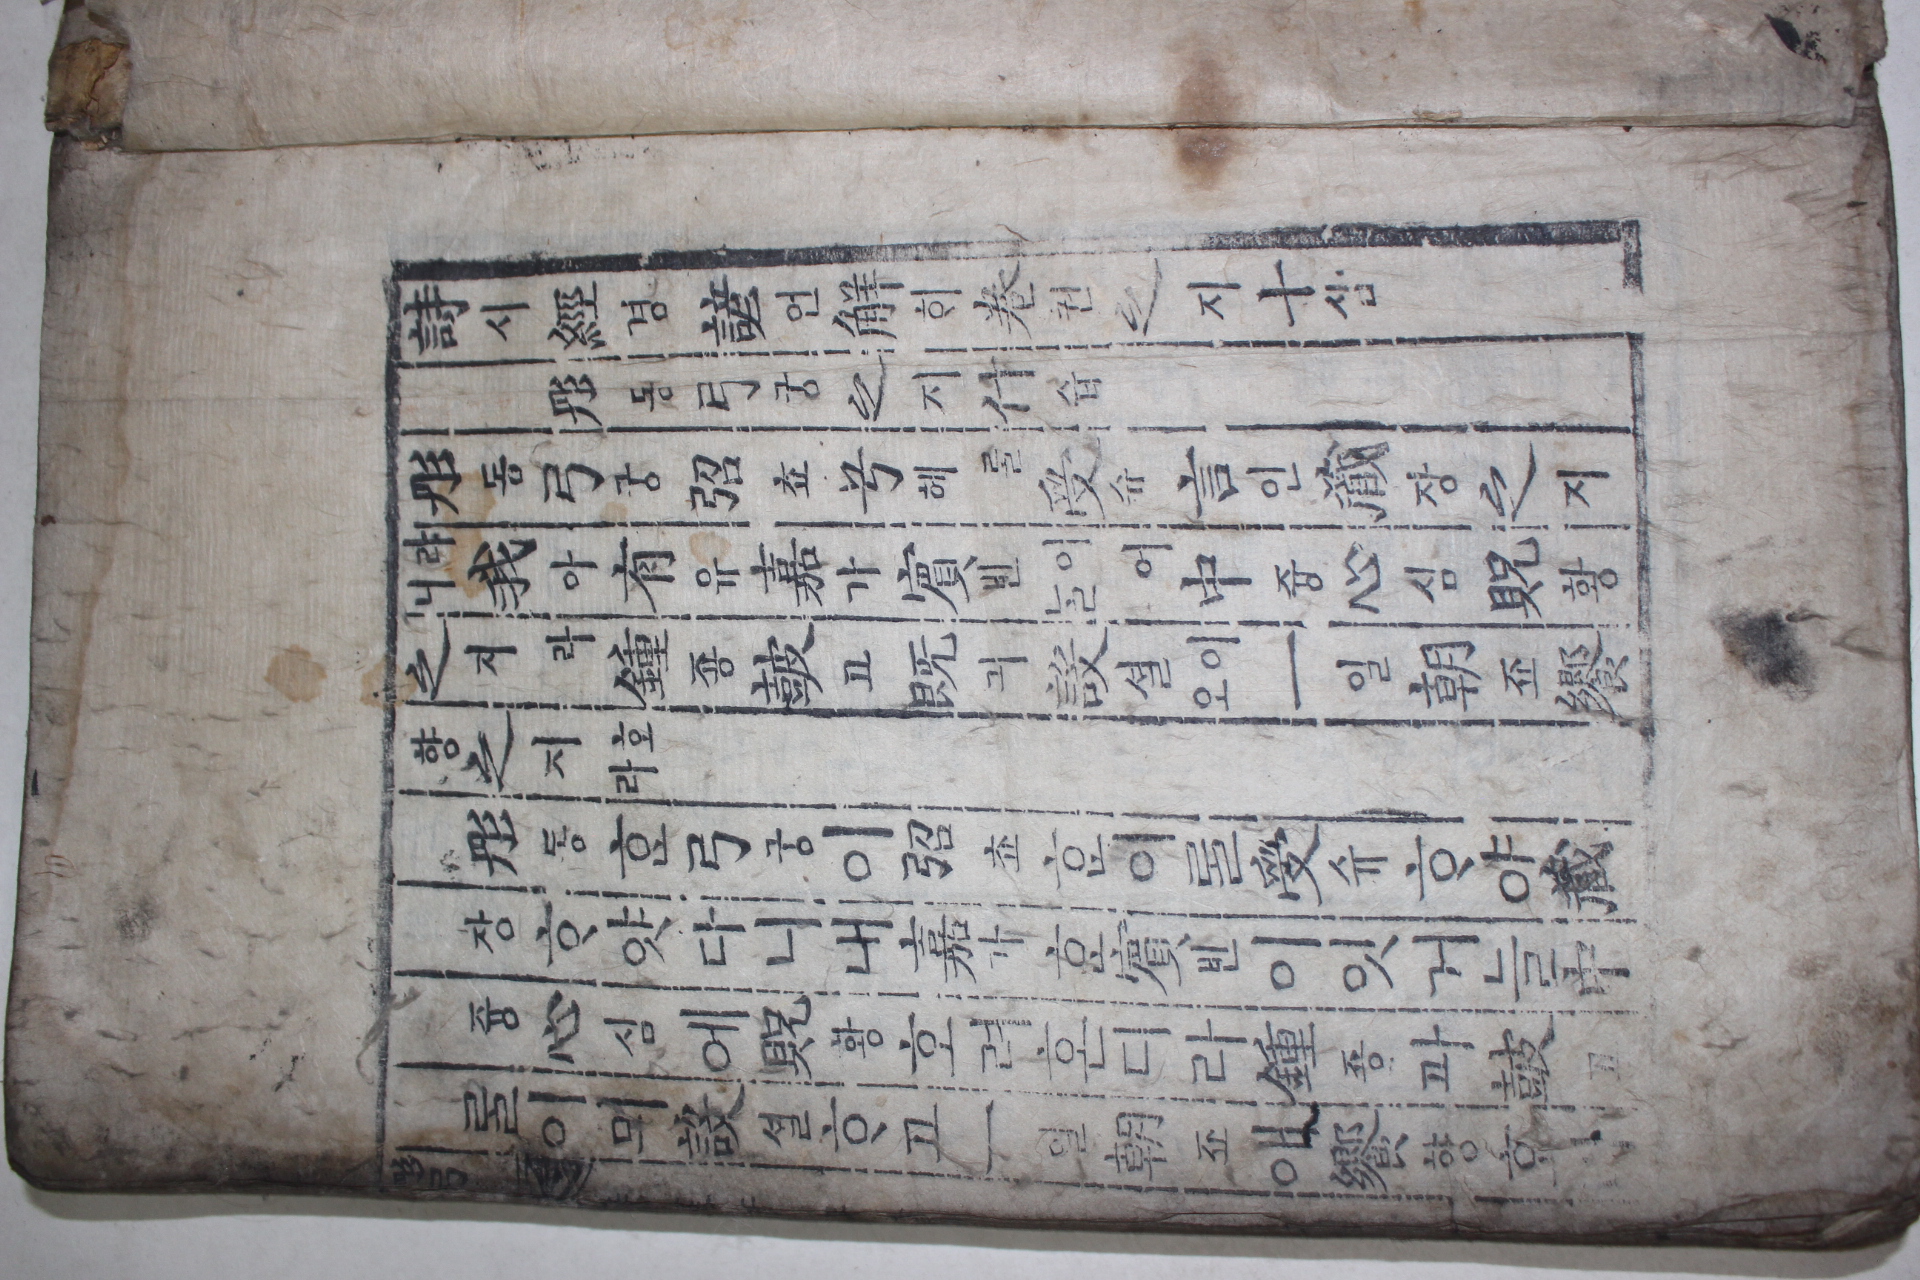 詩시經경諺언解ᄒᆡ卷권之지十십
彤동弓궁之지什습
彤동弓궁弨쵸兮혜ᄅᆞᆯ受슈言언藏장之지
니라我아有유嘉가賓빈이어늘中듕心심貺황
之지라鐘죵鼓고旣긔設셜이오一일朝죠饗
향之지호라
彤동ᄒᆞᆫ弓궁이弨쵸ᄒᆞᆫ이ᄅᆞᆯ受슈ᄒᆞ야藏
장ᄒᆞ얏다니내嘉가ᄒᆞᆫ賓빈이잇거늘中
듕心심에貺황호려ᄒᆞᆫ디라鐘죵과鼓고
ᄅᆞᆯ이믜設셜ᄒᆞ고一일朝죠애饗향호